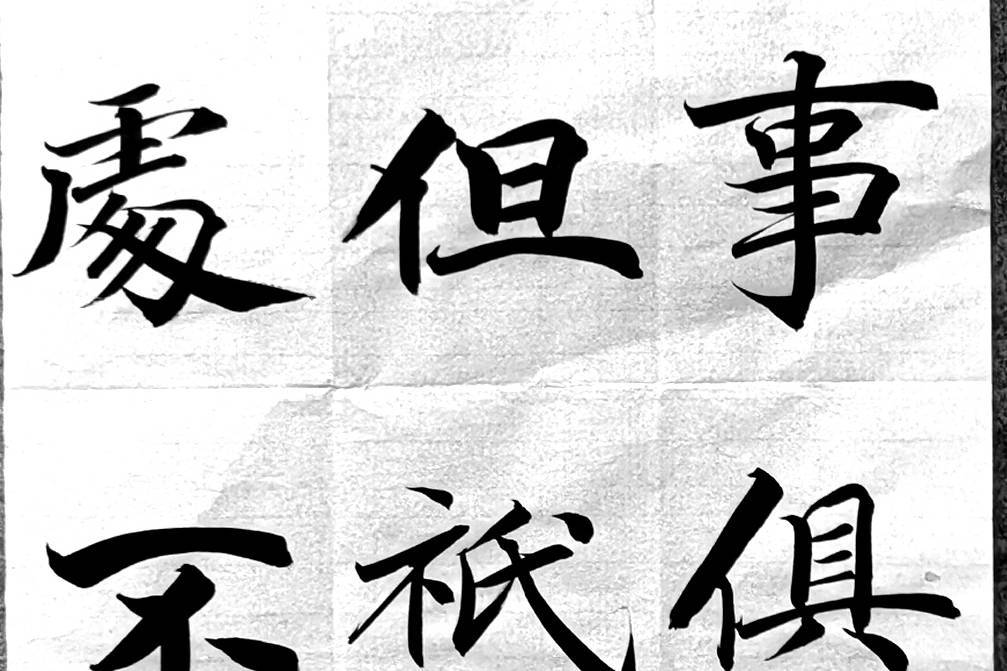 事俱
但祇
處不